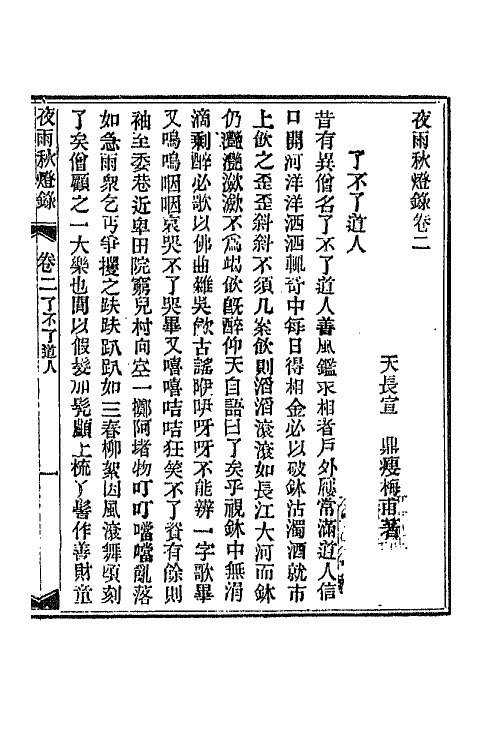 夜雨秋燈錄卷二
天長宣　鼎瘦梅甫著
了不了道人
昔有異僧名了不了道人善風鑑求相者戶外屨常滿道人信
口開河洋洋洒洒輒奇中每日得相金必以破鉢沽濁酒就市
上飲之歪歪斜斜不須几案飲則滔滔滾滾如長江大河而鉢
仍灩灩瀲瀲不爲竭飲旣醉仰天自語曰了矣乎視鉢中無涓
滴剩醉必歌以佛曲雜吳歈古謠咿咿呀呀不能辨一字歌畢
又嗚嗚咽咽哀哭不了哭畢又嘻嘻咭咭狂笑不了資有餘則
袖至委巷近卑田院窮兒村向空一擲阿堵物叮叮噹噹亂落
如急雨衆乞丐爭攫之趺趺趴趴如三春柳絮因風滾舞頃刻
了矣僧顧之一大樂也間以假髮加髡顱上梳丫髻作善財童
夜雨秋燈錄　卷二　了不了道人　一